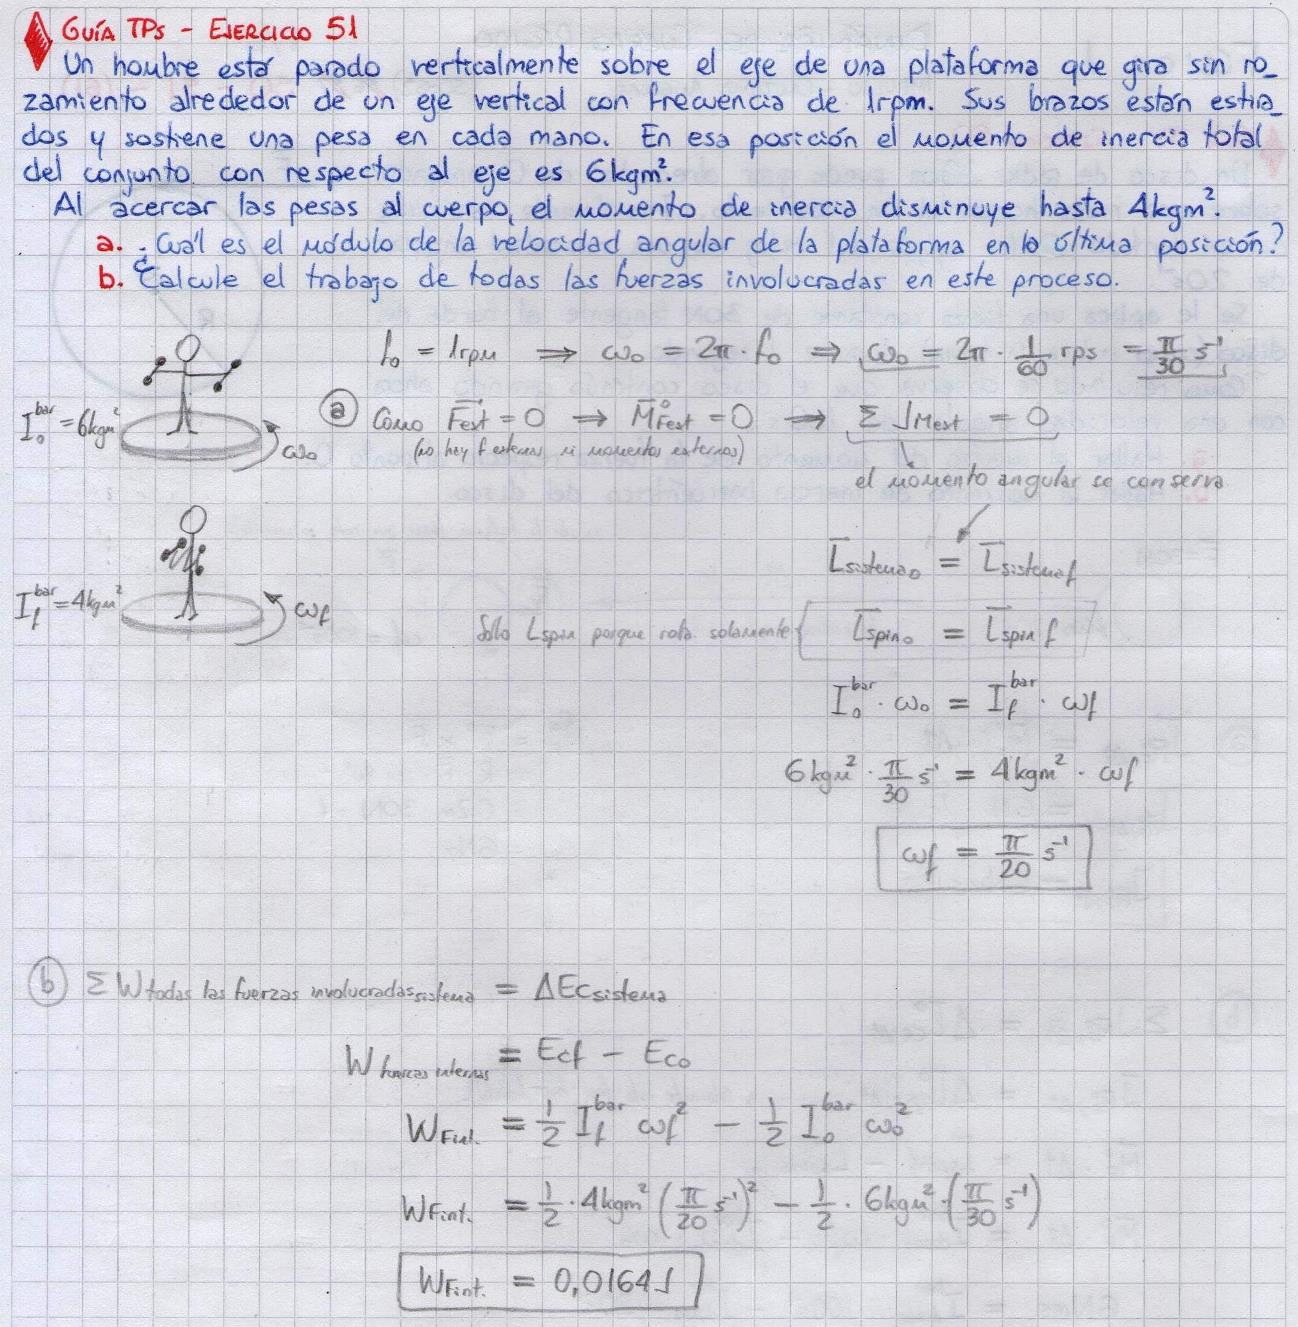 GUÍA TPs - EJERCICIO 51
Un hombre está parado verticalmente sobre el eje de una plataforma que gira sin ro_
zamiento alrededor de un eje vertical con frecuencia de 1rpm. Sus brazos están estira_
dos y sostiene una pesa en cada mano. En esa posición el momento de inercia total
del conjunto con respecto al eje es 6kgm².
Al acercar las pesas al cuerpo, el momento de inercia disminuye hasta 4kgm².
a. ¿Cuál es el módulo de la velocidad angular de la plataforma en la última posición?
b. Calcule el trabajo de todas las fuerzas involucradas en este proceso.
f₀ = 1rpm ⇒ ω₀ = 2π · f₀ ⇒ ω₀ = 2π · 1/60 rps = π/30 s⁻¹
I₀ᵇᵃʳ = 6kgm²
ω₀
a Como F̅ext = 0 → M̅°Fext = 0 → Σ JMext = 0
(no hay f externas ni momentos externos)
el momento angular se conserva
L̅sistema₀ = L̅sistemaf
If ᵇᵃʳ = 4kgm²
ωf
Sólo Lspin porque rota solamente { L̅spin₀ = L̅spin f
I₀ᵇᵃʳ · ω₀ = If ᵇᵃʳ · ωf
6kgm² · π/30 s⁻¹ = 4kgm² · ωf
ωf = π/20 s⁻¹
b Σ W todas las fuerzas involucradas sistema = ΔEc sistema
W fuerzas internas = Ecf - Ec₀
WFint. = 1/2 If ᵇᵃʳ ωf² - 1/2 I₀ᵇᵃʳ ω₀²
WFint. = 1/2 · 4kgm² (π/20 s⁻¹)² - 1/2 · 6kgm² · (π/30 s⁻¹)
WFint. = 0,0164J